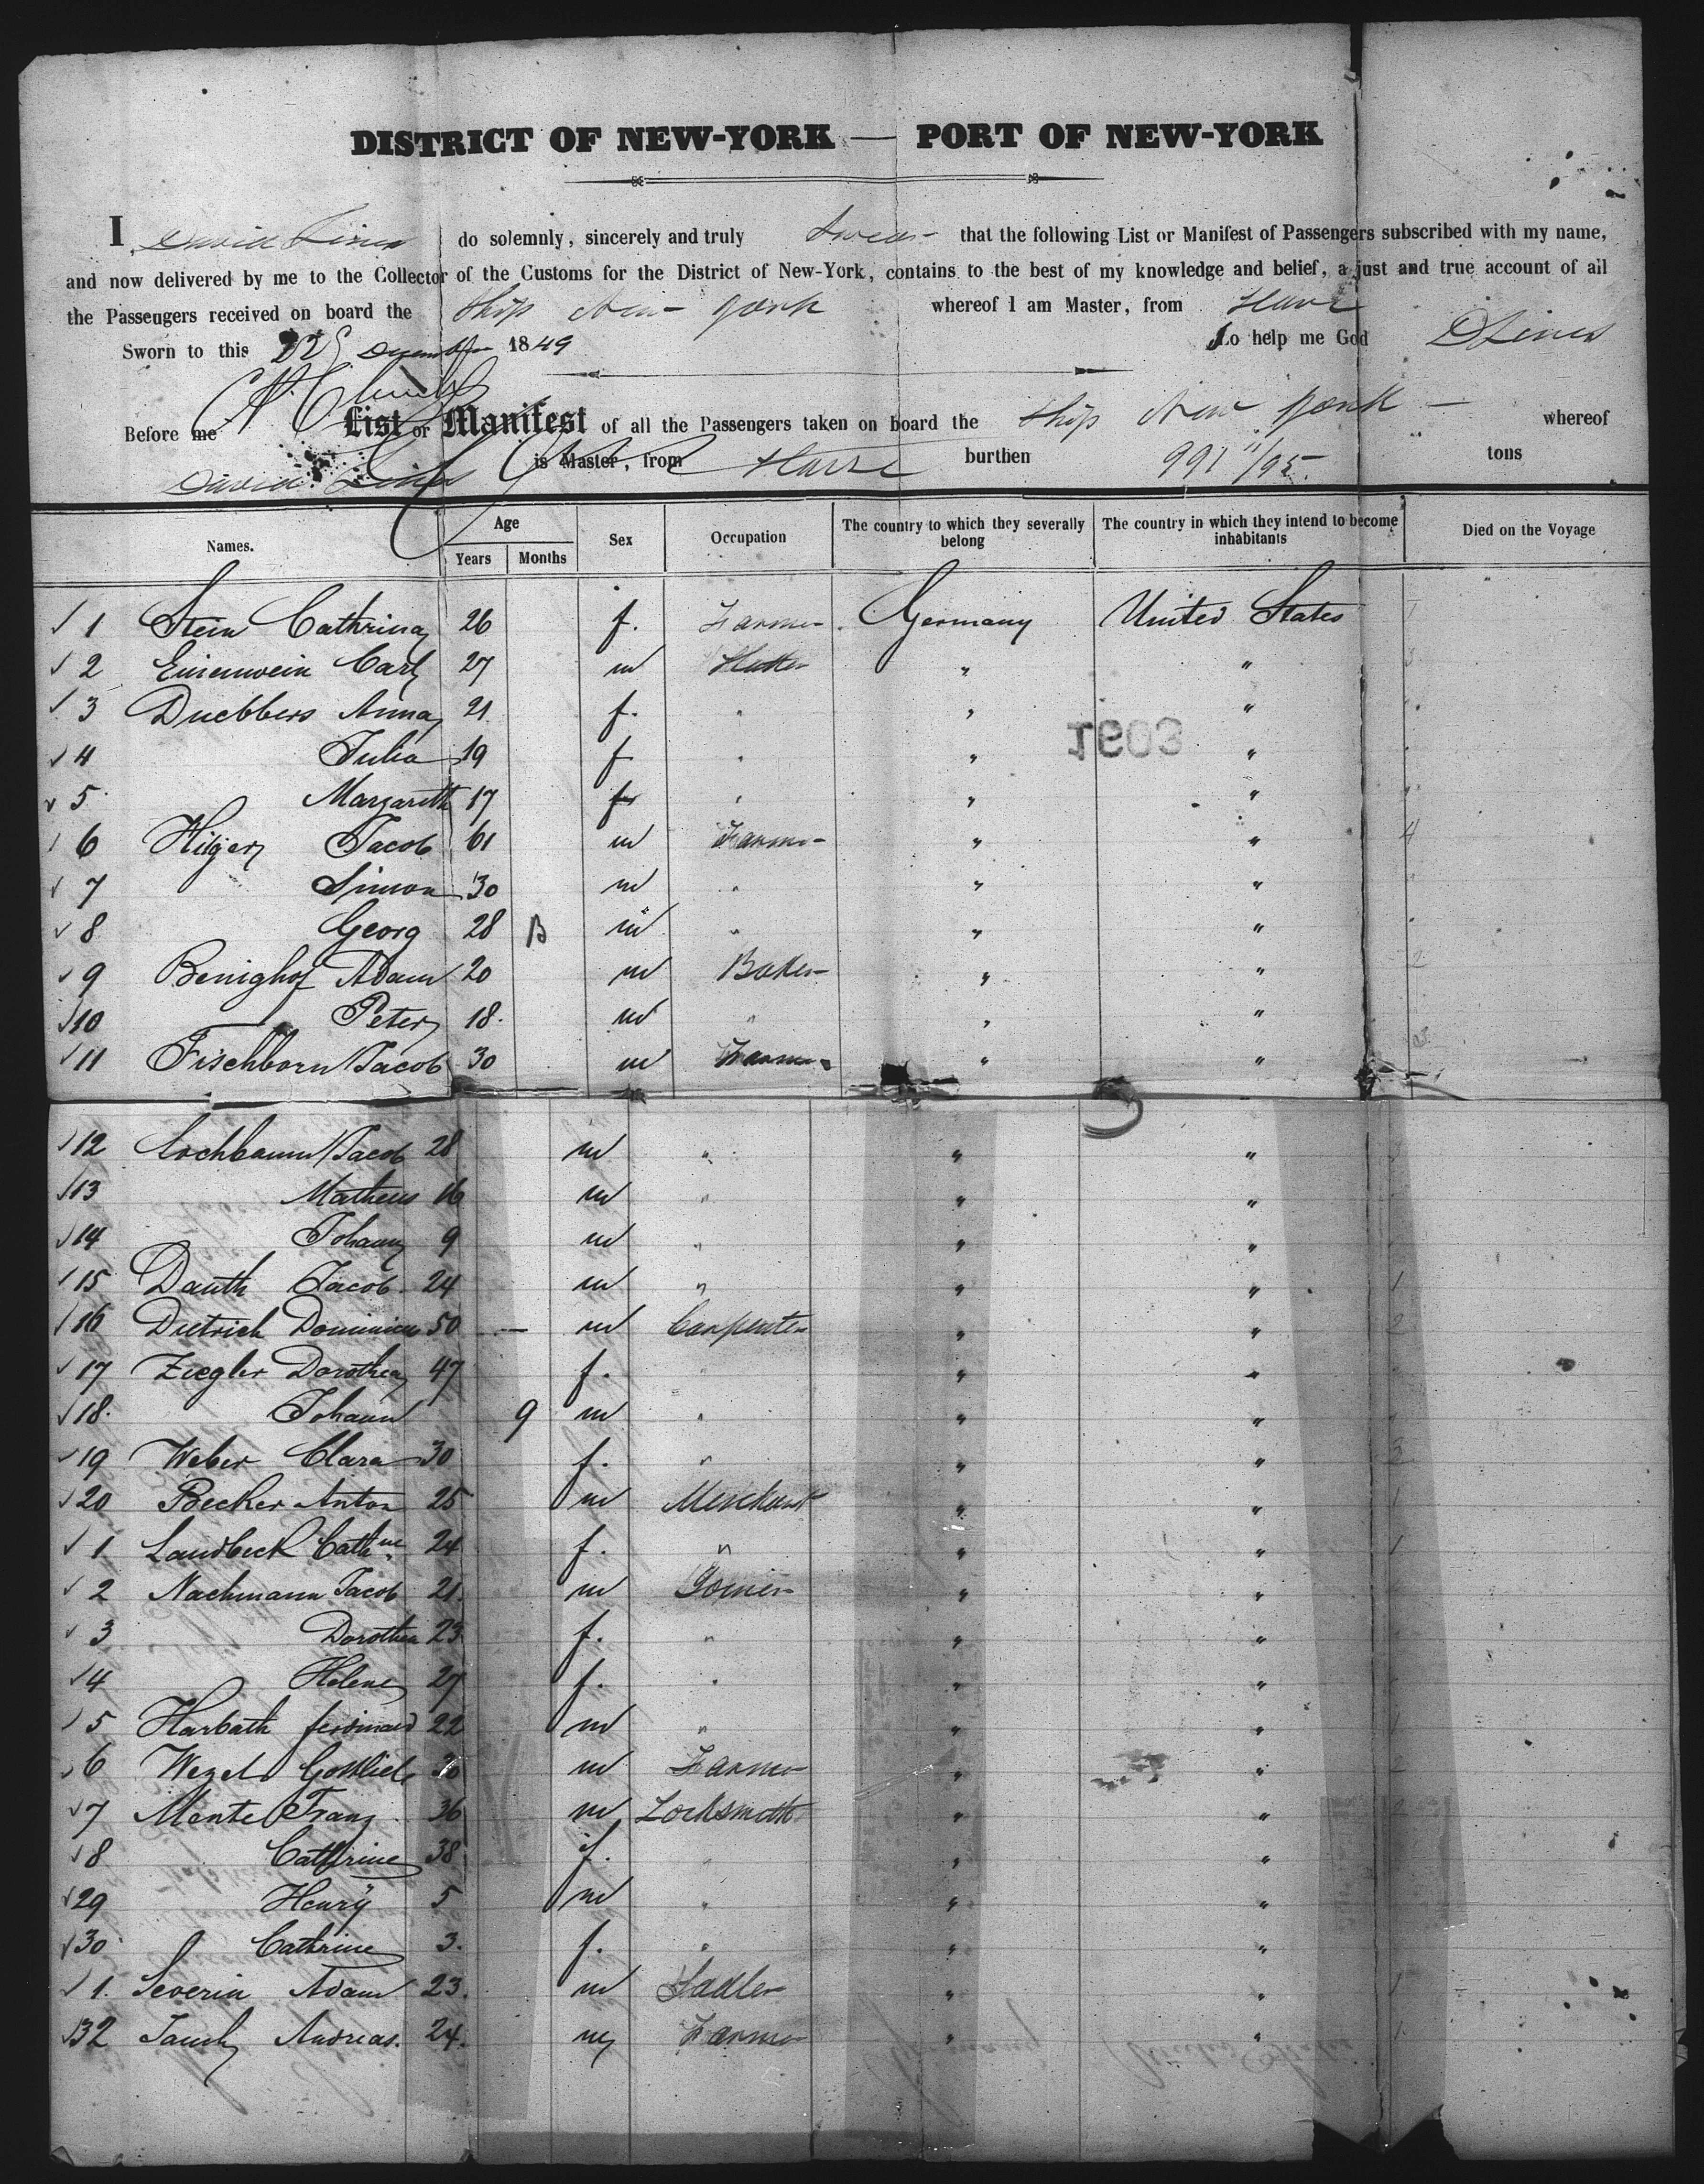 DISTRICT OF NEW-YORK — PORT OF NEW-YORK
I, David Lines do solemnly, sincerely and truly swear that the following List or Manifest of Passengers subscribed with my name,
and now delivered by me to the Collector of the Customs for the District of New-York, contains to the best of my knowledge and belief, a just and true account of all
the Passengers received on board the Ship New York whereof I am Master, from Havre
Sworn to this 22 December 1849 So help me God D Lines
Before me
List or Manifest of all the Passengers taken on board the Ship New York whereof
David Lines is Master, from Havre burthen 991 11/95 tons
Names. Age Years Months Sex Occupation The country to which they severally belong The country in which they intend to become inhabitants Died on the Voyage
1 Stein Cathrina 26 f. Farmer Germany United States
2 Eisenwein Carl 27 m " "
3 Duebbers Anna 21 f. " " "
1603
4 Julia 19 f " " "
5 Margareth 17 f " " "
6 Hilger Jacob 61 m Farmer " " 4
7 Simon 30 m " " "
8 Georg 28 B m " " "
9 Benighof Adam 20 m Baker " " 2
10 Peter 18. m " " "
11 Fischborn Jacob 30 m Farmer " "
12 Lochbaum Jacob 28 m " " "
13 Matheus 16 m " " "
14 Johann 9 m " " "
15 Dauth Jacob 24 m " " " 1
16 Dietrich 50 — m Carpenter " " 2
17 Ziegler Dorothea 47 f. " " "
18. Johann 9 m " " "
19 Weber Clara 30 f. " " " 3
20 Becker Anton 25 m Merchant " " 1
1 Landbeck Cathne 24 f. " " " 1
2 Nachmann Jacob 21. m Joiner " "
3 Dorothea 23 f. " " "
4 Helene 27 f. " " "
5 Harbath ferdinand 22 m " " " 1
6 Wezel Gottlieb m Farmer " "
7 Mente Franz 36 m Locksmith " "
8 Cathrine 38 f. " " "
29 Henry 5 m " " "
30 Cathrine 3. f. " " "
1. Severin Adam 23. m Sadler " " 1
32 Andreas. 24. m Farmer " " 1